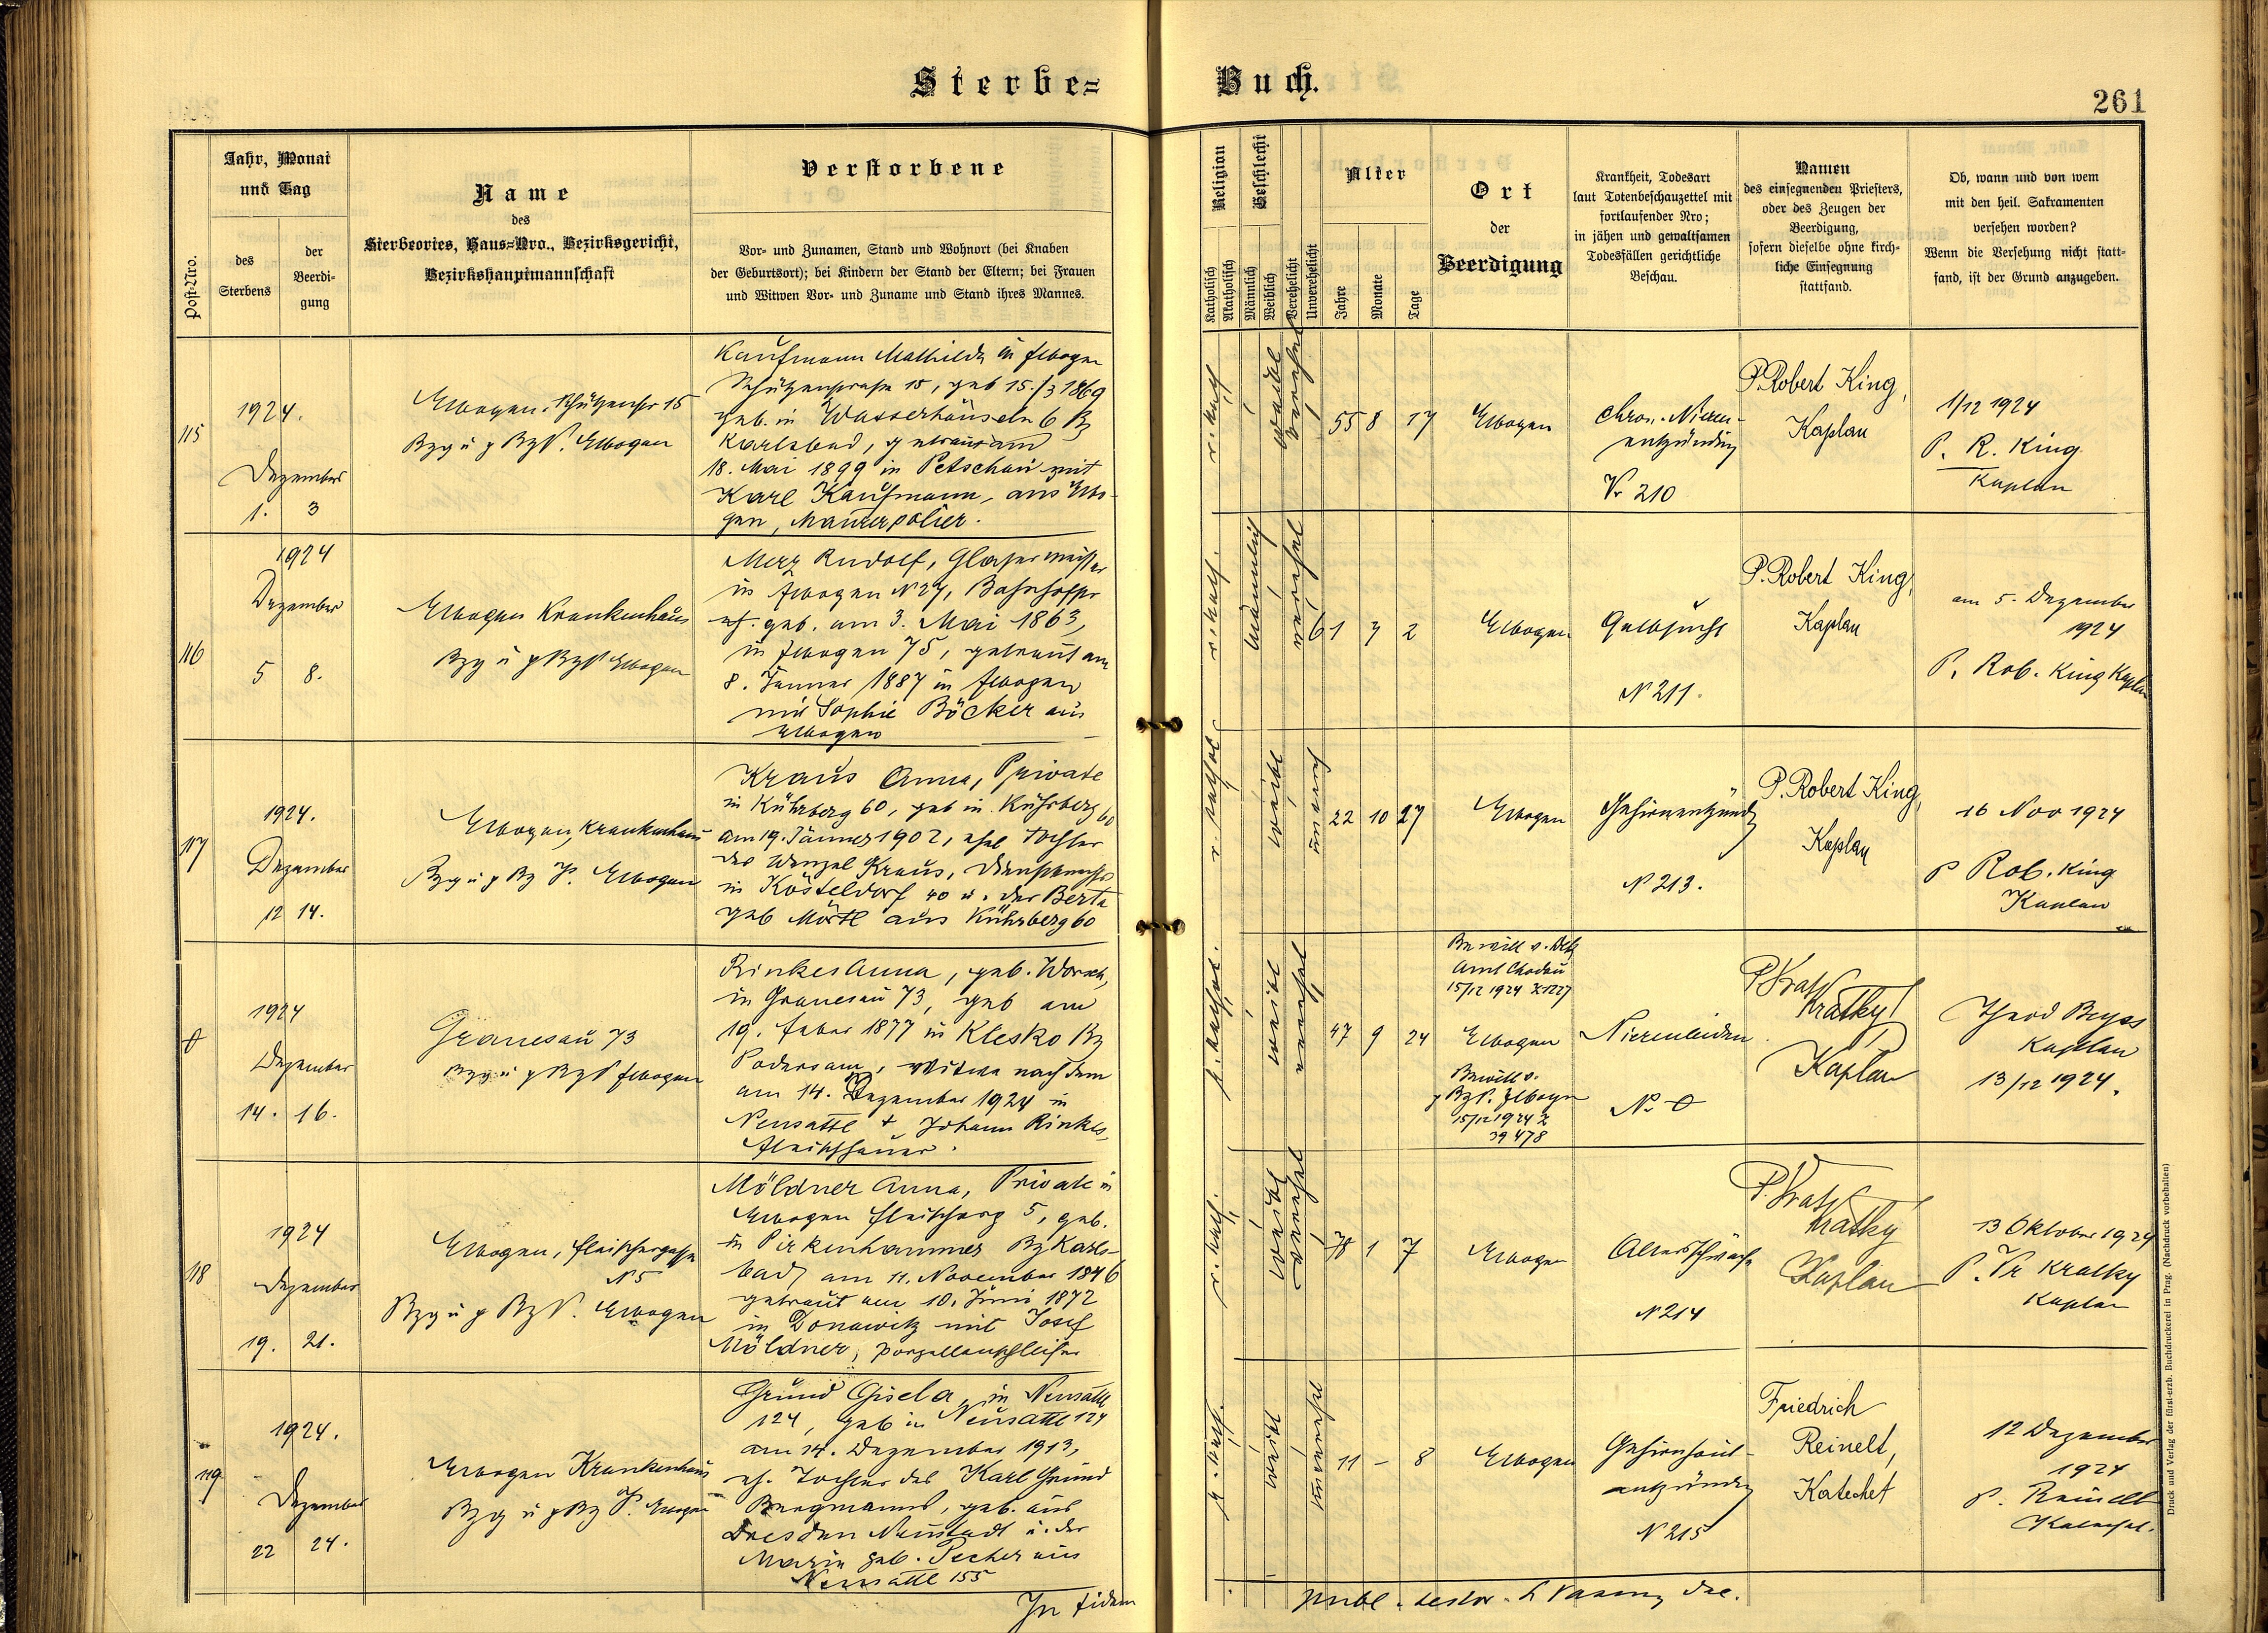 Sterbe=
Buch.
261
Post-Nro.
Jahr, Monat
und Tag
des
Sterbens
der
Beerdi-
gung
Name
des
Sterbeortes, Haus=Nro., Bezirksgericht,
Bezirkshauptmannschaft
Verstorbene
Vor- und Zunamen, Stand und Wohnort (bei Knaben
der Geburtsort); bei Kindern der Stand der Eltern; bei Frauen
und Witwen Vor- und Zuname und Stand ihres Mannes.
Religion
Katholisch
Akatholisch
Geschlecht
Männlich
Weiblich
Verehelicht
Unverehelicht
Alter
Jahre
Monate
Tage
Ort
der
Beerdigung
Krankheit, Todesart
laut Totenbeschauzettel mit
fortlaufender Nro;
in jähen und gewaltsamen
Todesfällen gerichtliche
Beschau.
Namen
des einsegnenden Priesters,
oder des Zeugen der
Beerdigung,
sofern dieselbe ohne kirch-
liche Einsegnung
stattfand.
Ob, wann und von wem
mit den heil. Sakramenten
versehen worden?
Wenn die Versehung nicht statt-
fand, ist der Grund anzugeben.
115
1924.
Dezember
1. 3
Elbogen, Schützenstr 15
Elbogen
Kaufmann Mathilde in Elbogen
Schützenstrasse 15, geb 15./3 1869
geb. in Wasserhäuseln 6 Bz
Karlsbad, getraut am
18. Mai 1899 in Petschau mit
Karl Kaufmann, aus Elbo-
gen, Maurerpolier.
r. kath
weibl
verehel
55 8 17
Elbogen
Chron. Nieren-
entzündung
Nr 210
P. Robert King,
Kaplan
1/12 1924
P. R. King
Kaplan
116
1924
Dezember
5 8.
Elbogen Krankenhaus
Elbogen
Merz Rudolf, Glasermeister
in Elbogen N 27, Bahnhofstr
geb. am 3. Mai 1863,
in Elbogen 75, getraut am
8. Jänner 1887 in Elbogen
mit Sophie Böcker aus
Elbogen
r. kath.
männlich
verehel
61 7 2
Elbogen
Gelbsucht
N 211.
P. Robert King,
Kaplan
am 5. Dezember
1924
P. Rob. King Kaplan
117
1924.
Dezember
12 14.
Elbogen, Krankenhaus
Elbogen
Kraus Anna, Private
in Kührberg 60, geb in Kührberg 60
am 19. Jänner 1902, ehel Tochter
des Wenzel Kraus,
in Kösteldorf 40 u. der Berta
geb Mörtl aus Kührberg 60
weibl
22 10 27
Elbogen
Gehirnentzündg
N 213.
P. Robert King,
Kaplan
16 Nov 1924
P Rob. King
Kaplan
1924
Dezember
14. 16.
Granesau 73
Elbogen
Rinkes Anna, geb. Worsch,
in Granesau 73, geb am
19. Feber 1877 in Klesko Bz
Podersam, Witwe nach dem
am 14. Dezember 1924 in
Neusattl + Johann Rinkes,
Fleischhauer.
weibl
verehel
47 9 24
Amt Chodau
15/12 1924 Z 1227
Elbogen
Bewill v.
Elbogen
15/12 1924 Z
39 478
Nierenleiden
N. 0
Kratky
Kaplan
Kaplan
13/12 1924.
118
1924
Dezember
19. 21.
Elbogen, Fleischergasse
N 5
Elbogen
Möldner Anna, Private in
Elbogen Fleischerg 5, geb.
in Pirkenhammer Bz Karls-
bad, am 11. November 1846
getraut am 10. Juni 1872
in Donawitz mit Josef
Möldner, Porzellanschleifer
r. kath.
weibl
verehel
78 1 7
Elbogen
Altersschwäche
N 214
Kratky
Kaplan
13 Oktober 1924
P. Fr Kratky
Kaplan
119
1924.
Dezember
22 24.
Elbogen Krankenhaus
Elbogen
Grund Gisela, in Neusattl
124, geb in Neusattl 124
am 14. Dezember 1913,
eh. Tochter des Karl Grund
Bergmanns, geb. aus
Dresden Neustadt u. der
Marie geb. Pecher aus
Neusattl 155
r. kath.
weibl
unverehel
11 – 8
Elbogen
Gehirnhaut-
entzündg
N 215
Friedrich
Reinelt,
Katechet
12 Dezember
1924
P. Reinelt
Katechet.
In fidem
Druck und Verlag der fürst-erzb. Buchdruckerei in Prag. (Nachdruck vorbehalten)